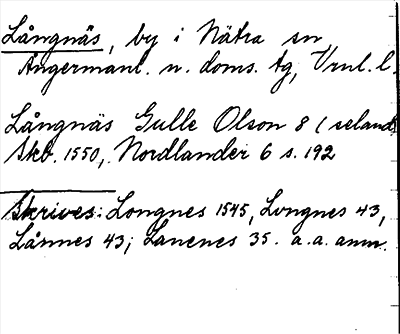 Långnäs, by i Nätra sn,
Ångermanl. n. doms. tg, Vrnl. l.
Långnäs Gulle Olson 8 (seland
Skb. 1550, Nordlander 6 s. 192
Skrives: Longnes 1545, Longnes 43,
Lårnes 43; Lanenes 35. a.a. anm.